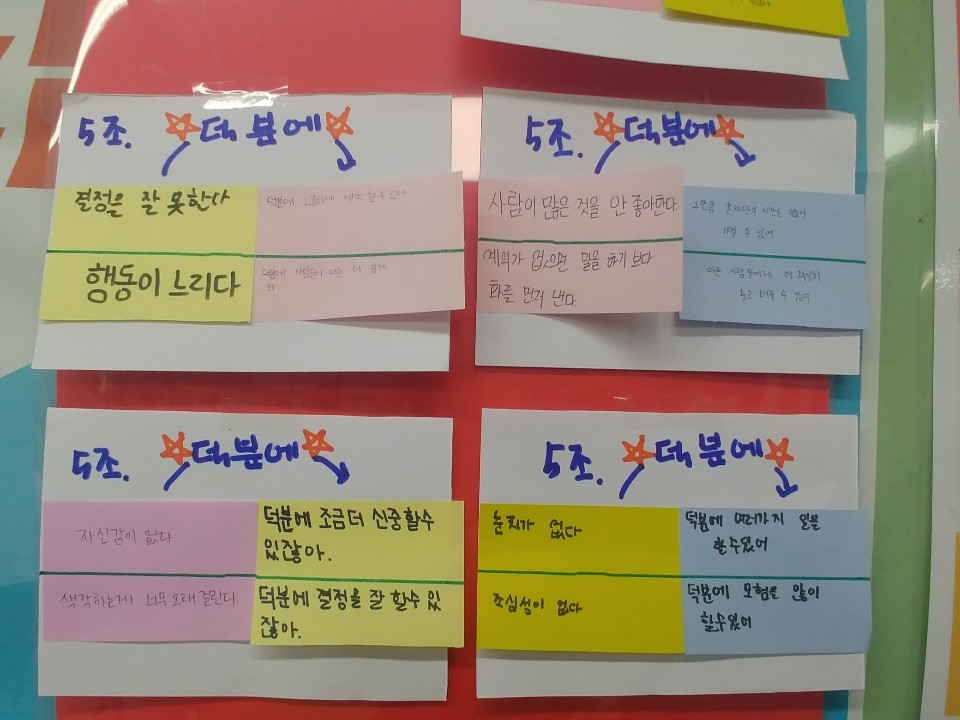 5조. 덕분에
결정을 잘 못한다
행동이 느리다
덕분에 생각 할 수 있어
덕분에 사람들이 너를 더
와
5조. 덕분에
사람이 많은 것을 안 좋아한다.
계획가 없으면 말을 하기 보다
화를 먼저 낸다.
그만큼 혼자만의 시간을 많이
가질 수 있어
다른 사람들에게 더 확실히
수 있어
5조. 덕분에
자신감이 없다
생각하는게 너무 오래 걸린다.
덕분에 조금더 신중할수
있잖아.
덕분에 결정을 잘 할수 있
잖아.
5조. 덕분에
눈치가 없다
조심성이 없다
덕분에 여러가지 일을
할수있어
덕분에 모험을 많이
할수있어